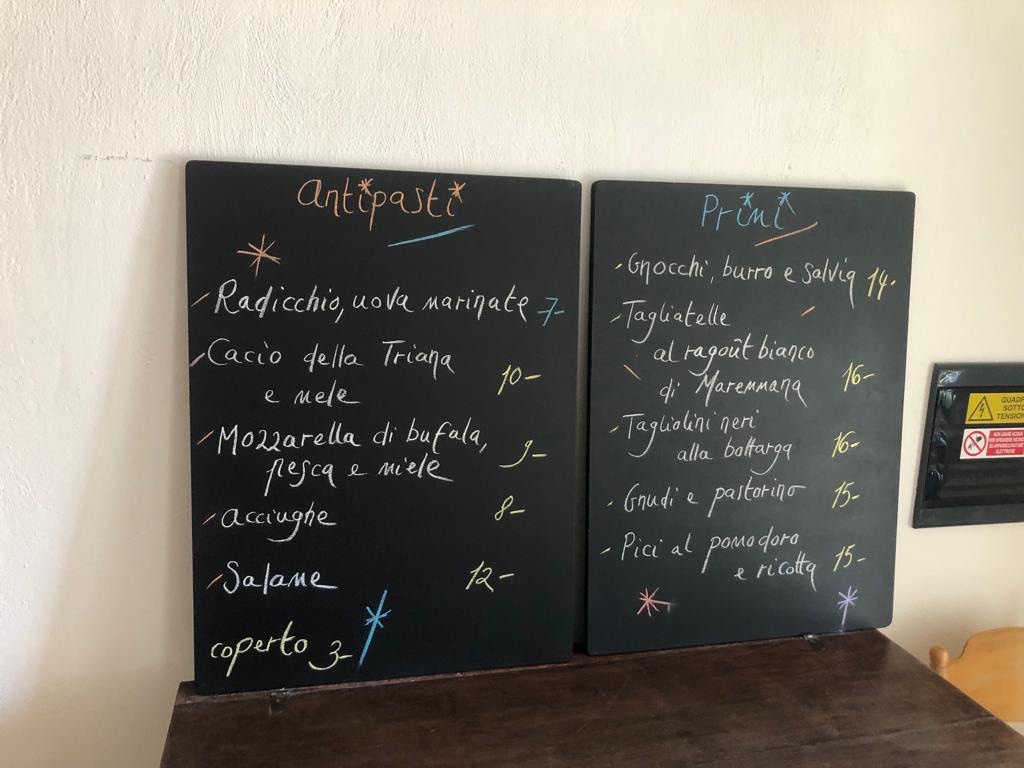 Antipasti
Radicchio, uova marinate 7-
Cacio della Triana
e mele 10-
Mozzarella di bufala,
pesca e miele 9-
acciughe 8-
Salame 12-
coperto 3-
Primi
Gnocchi, burro e salvia 14-
Tagliatelle
al ragoût bianco
di Maremmana 16-
Tagliolini neri
alla bottarga 16-
Gnudi e pastorino 15-
Pici al pomodoro
e ricotta 15-
QUADR
SOTTO
TENSION
NON USARE ACQUA
PER SPEGNERE INCENDI
ELETTRICHE